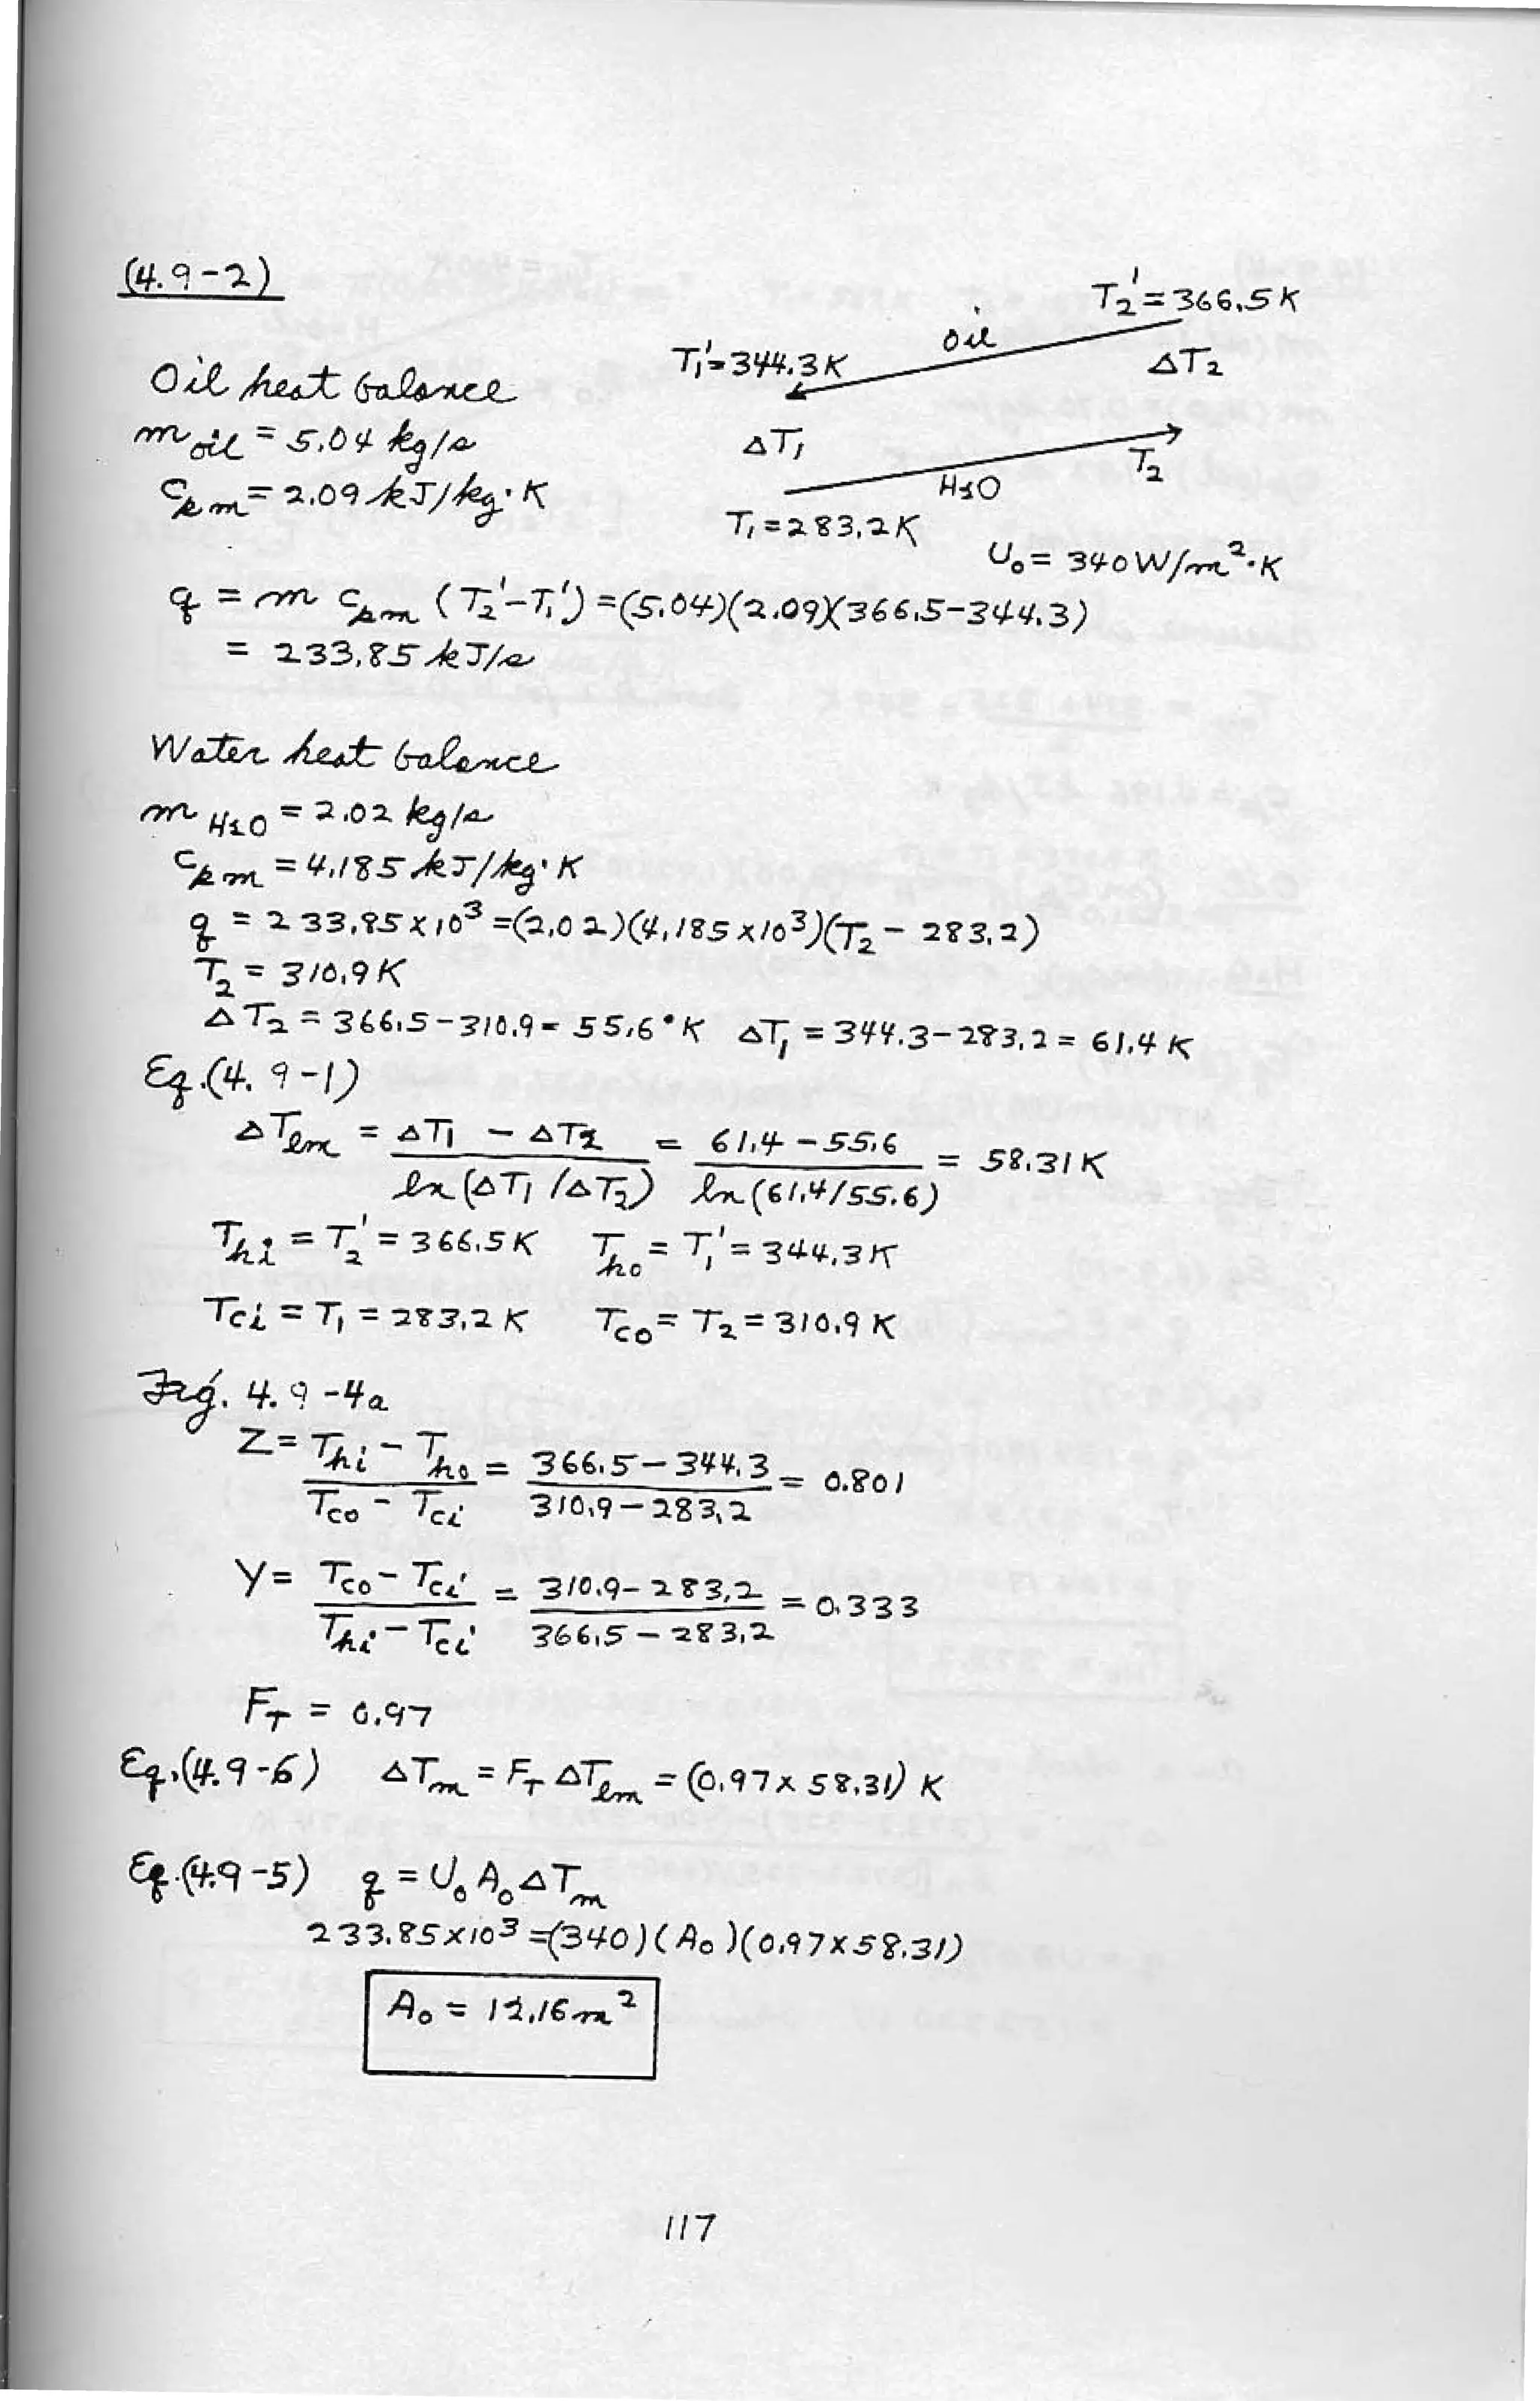 (4.9-2)
T2' = 366.5 K
oil
T1' = 344.3 K
ΔT2
Oil heat balance
m oil = 5.04 kg/s
ΔT1
T2
cpm = 2.09 kJ/kg·K
H2O
T1 = 283.2 K
Uo = 340 W/m²·K
q = m cpm (T2' - T1') = (5.04)(2.09)(366.5 - 344.3)
= 233.85 kJ/s
Water heat balance
m H2O = 2.02 kg/s
cpm = 4.185 kJ/kg·K
q = 233.85 x 10³ = (2.02)(4.185 x 10³)(T2 - 283.2)
T2 = 310.9 K
ΔT2 = 366.5 - 310.9 = 55.6°K ΔT1 = 344.3 - 283.2 = 61.4 K
Eq.(4.9-1)
ΔTlm = ΔT1 - ΔT2 / ln(ΔT1/ΔT2) = 61.4 - 55.6 / ln(61.4/55.6) = 58.31 K
Thi = T2' = 366.5 K Tho = T1' = 344.3 K
Tci = T1 = 283.2 K Tco = T2 = 310.9 K
Fig. 4.9-4a
Z = Thi - Tho / Tco - Tci = 366.5 - 344.3 / 310.9 - 283.2 = 0.801
Y = Tco - Tci / Thi - Tci = 310.9 - 283.2 / 366.5 - 283.2 = 0.333
FT = 0.97
Eq.(4.9-6) ΔTm = FT ΔTlm = (0.97 x 58.31) K
Eq.(4.9-5) q = Uo Ao ΔTm
233.85 x 10³ = (340)(Ao)(0.97 x 58.31)
Ao = 12.16 m²
117